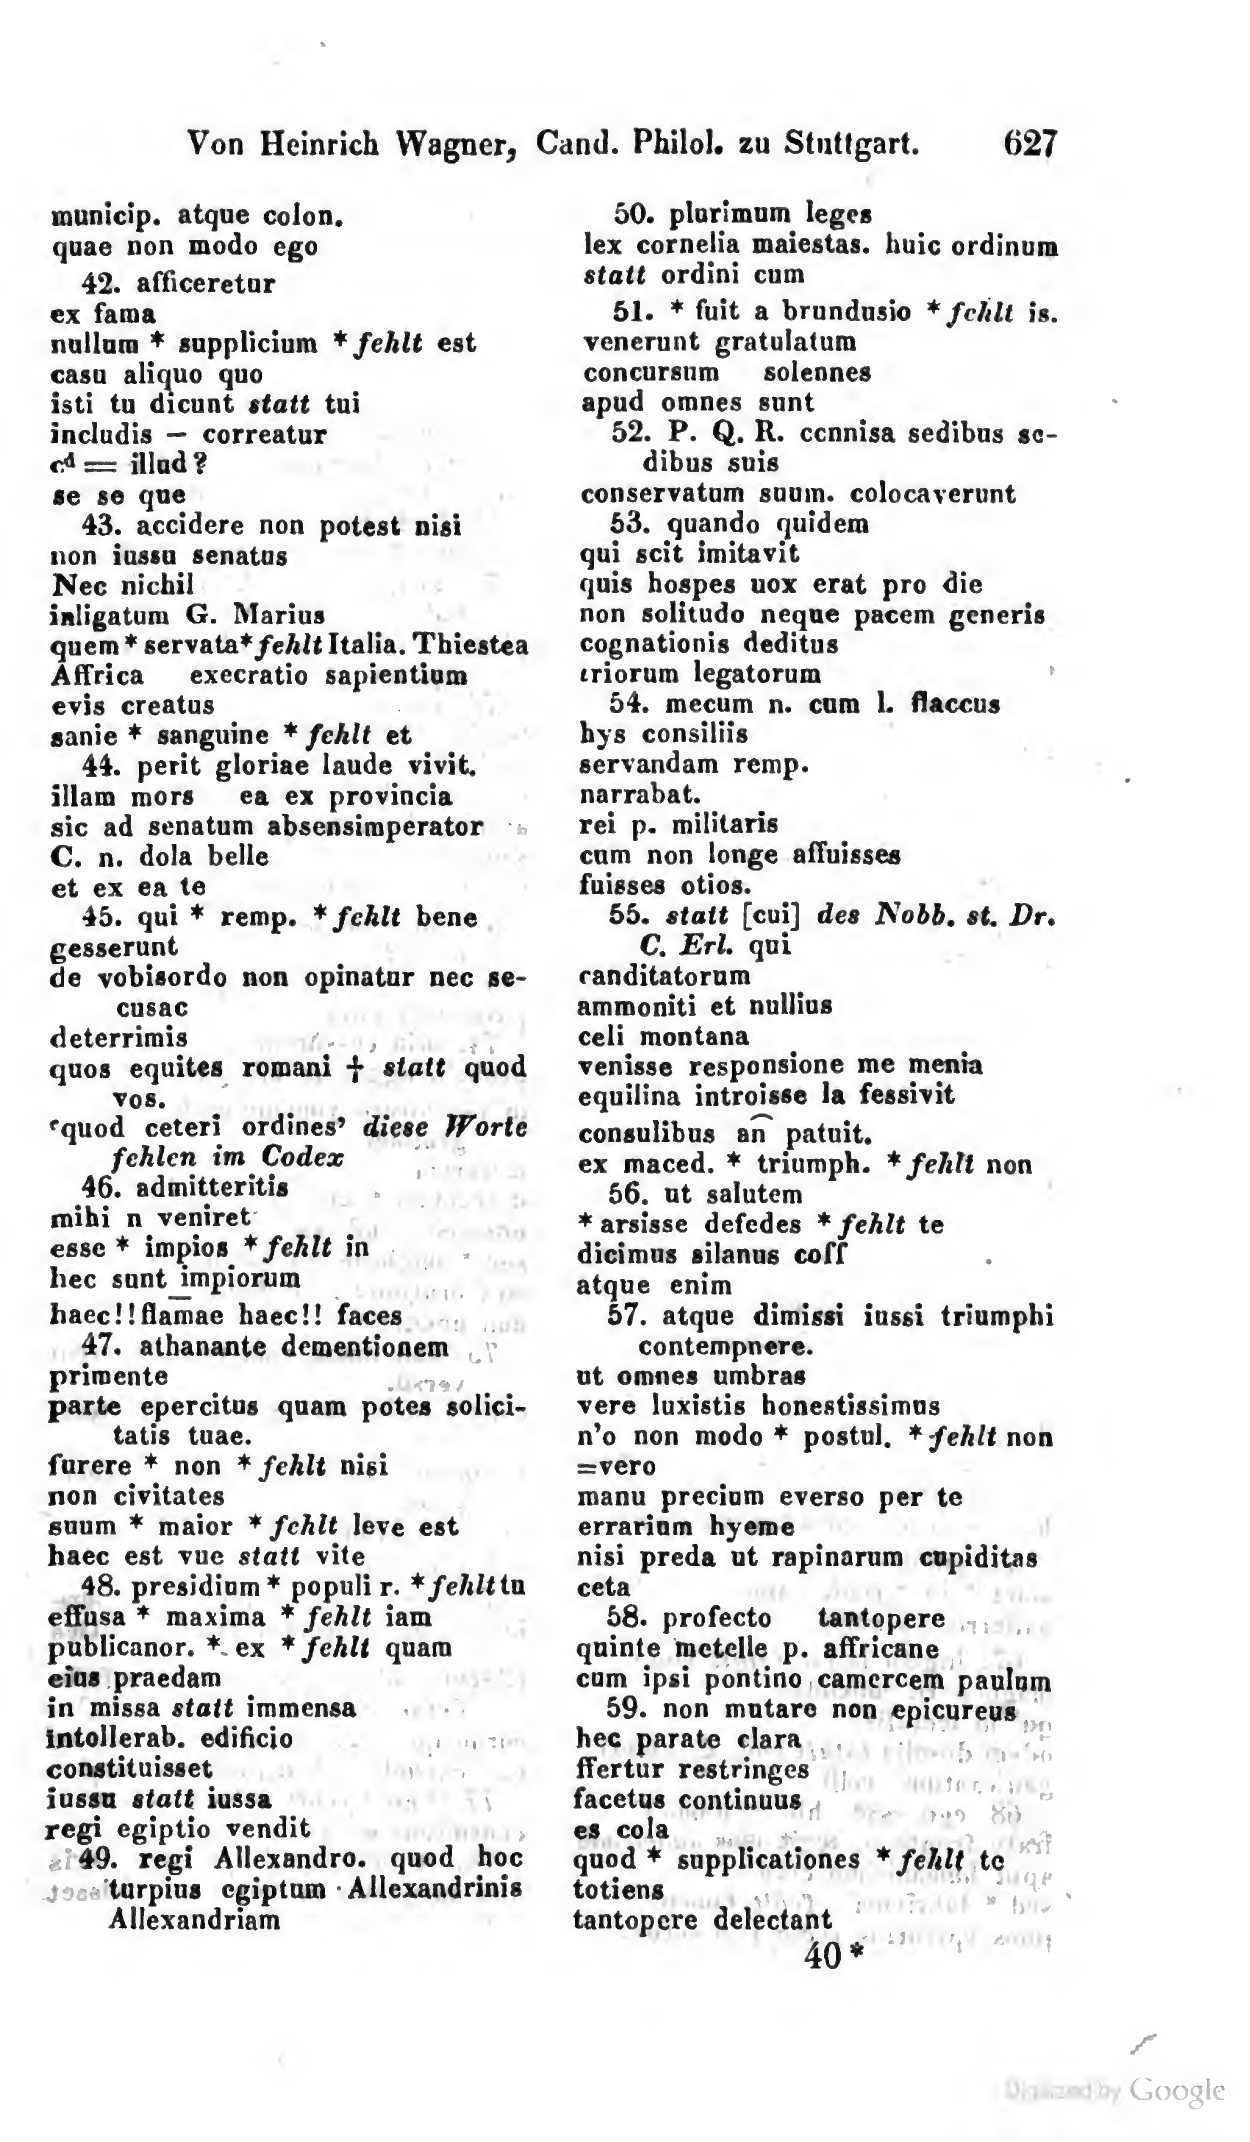 Von Heinrich Wagner, Cand. Philol. zu Stuttgart. 627
municip. atque colon.
quae non modo ego
42. afficeretur
ex fama
nullum * supplicium * fehlt est
casu aliquo quo
isti tu dicunt statt tui
includis — correatur
cᵈ = illud?
se se que
43. accidere non potest nisi
non iussu senatus
Nec nichil
inligatum G. Marius
quem * servata * fehlt Italia. Thiestea
Affrica execratio sapientium
evis creatus
sanie * sanguine * fehlt et
44. perit gloriae laude vivit.
illam mors ea ex provincia
sic ad senatum absensimperator
C. n. dola belle
et ex ea te
45. qui * remp. * fehlt bene
gesserunt
de vobisordo non opinatur nec se-
cusac
deterrimis
quos equites romani † statt quod
vos.
‘quod ceteri ordines’ diese Worte
fehlen im Codex
46. admitteritis
mihi n veniret
esse * impios * fehlt in
hec sunt impiorum
haec!! flamae haec!! faces
47. athanante dementionem
primente
parte epercitus quam potes solici-
tatis tuae.
furere * non * fehlt nisi
non civitates
suum * maior * fehlt leve est
haec est vue statt vite
48. presidium * populi r. * fehlt tu
effusa * maxima * fehlt iam
publicanor. * ex * fehlt quam
eius praedam
in missa statt immensa
intollerab. edificio
constituisset
iussu statt iussa
regi egiptio vendit
49. regi Allexandro. quod hoc
turpius egiptum Allexandrinis
Allexandriam
50. plurimum leges
lex cornelia maiestas. huic ordinum
statt ordini cum
51. * fuit a brundusio * fehlt is.
venerunt gratulatum
concursum solennes
apud omnes sunt
52. P. Q. R. cennisa sedibus se-
dibus suis
conservatum suum. colocaverunt
53. quando quidem
qui scit imitavit
quis hospes uox erat pro die
non solitudo neque pacem generis
cognationis deditus
triorum legatorum
54. mecum n. cum l. flaccus
hys consiliis
servandam remp.
narrabat.
rei p. militaris
cum non longe affuisses
fuisses otios.
55. statt [cui] des Nobb. st. Dr.
C. Erl. qui
canditatorum
ammoniti et nullius
celi montana
venisse responsione me menia
equilina introisse la fessivit
consulibus an͡ patuit.
ex maced. * triumph. * fehlt non
56. ut salutem
* arsisse defedes * fehlt te
dicimus silanus coff
atque enim
57. atque dimissi iussi triumphi
contempnere.
ut omnes umbras
vere luxistis honestissimus
n’o non modo * postul. * fehlt non
=vero
manu precium everso per te
errarium hyeme
nisi preda ut rapinarum cupiditas
ceta
58. profecto tantopere
quinte metelle p. affricane
cum ipsi pontino camercem paulum
59. non mutare non epicureus
hec parate clara
ffertur restringes
facetus continuus
es cola
quod * supplicationes * fehlt te
totiens
tantopere delectant
40 *
Digitized by Google